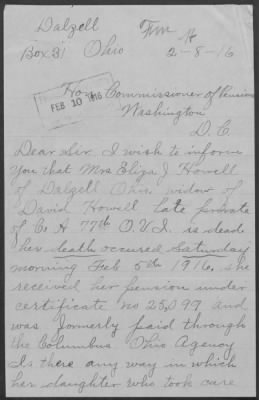 Dalzell
Box 31 Ohio
2-8-16
FEB 10 1916
Hon Commissioner of Pensions
Washington
D. C.
Dear Sir I wish to inform
you that Mrs Eliza J Howell
of Dalzell Ohio, widow of
David Howell late private
of C. H 77th O.V.I. is dead
her death occured Saturday
morning Feb 5th 1916, she
received her pension under
certificate no 25,099 and
was formerly paid through
the Columbus Ohio Agency
Is there any way in which
her daughter who took care